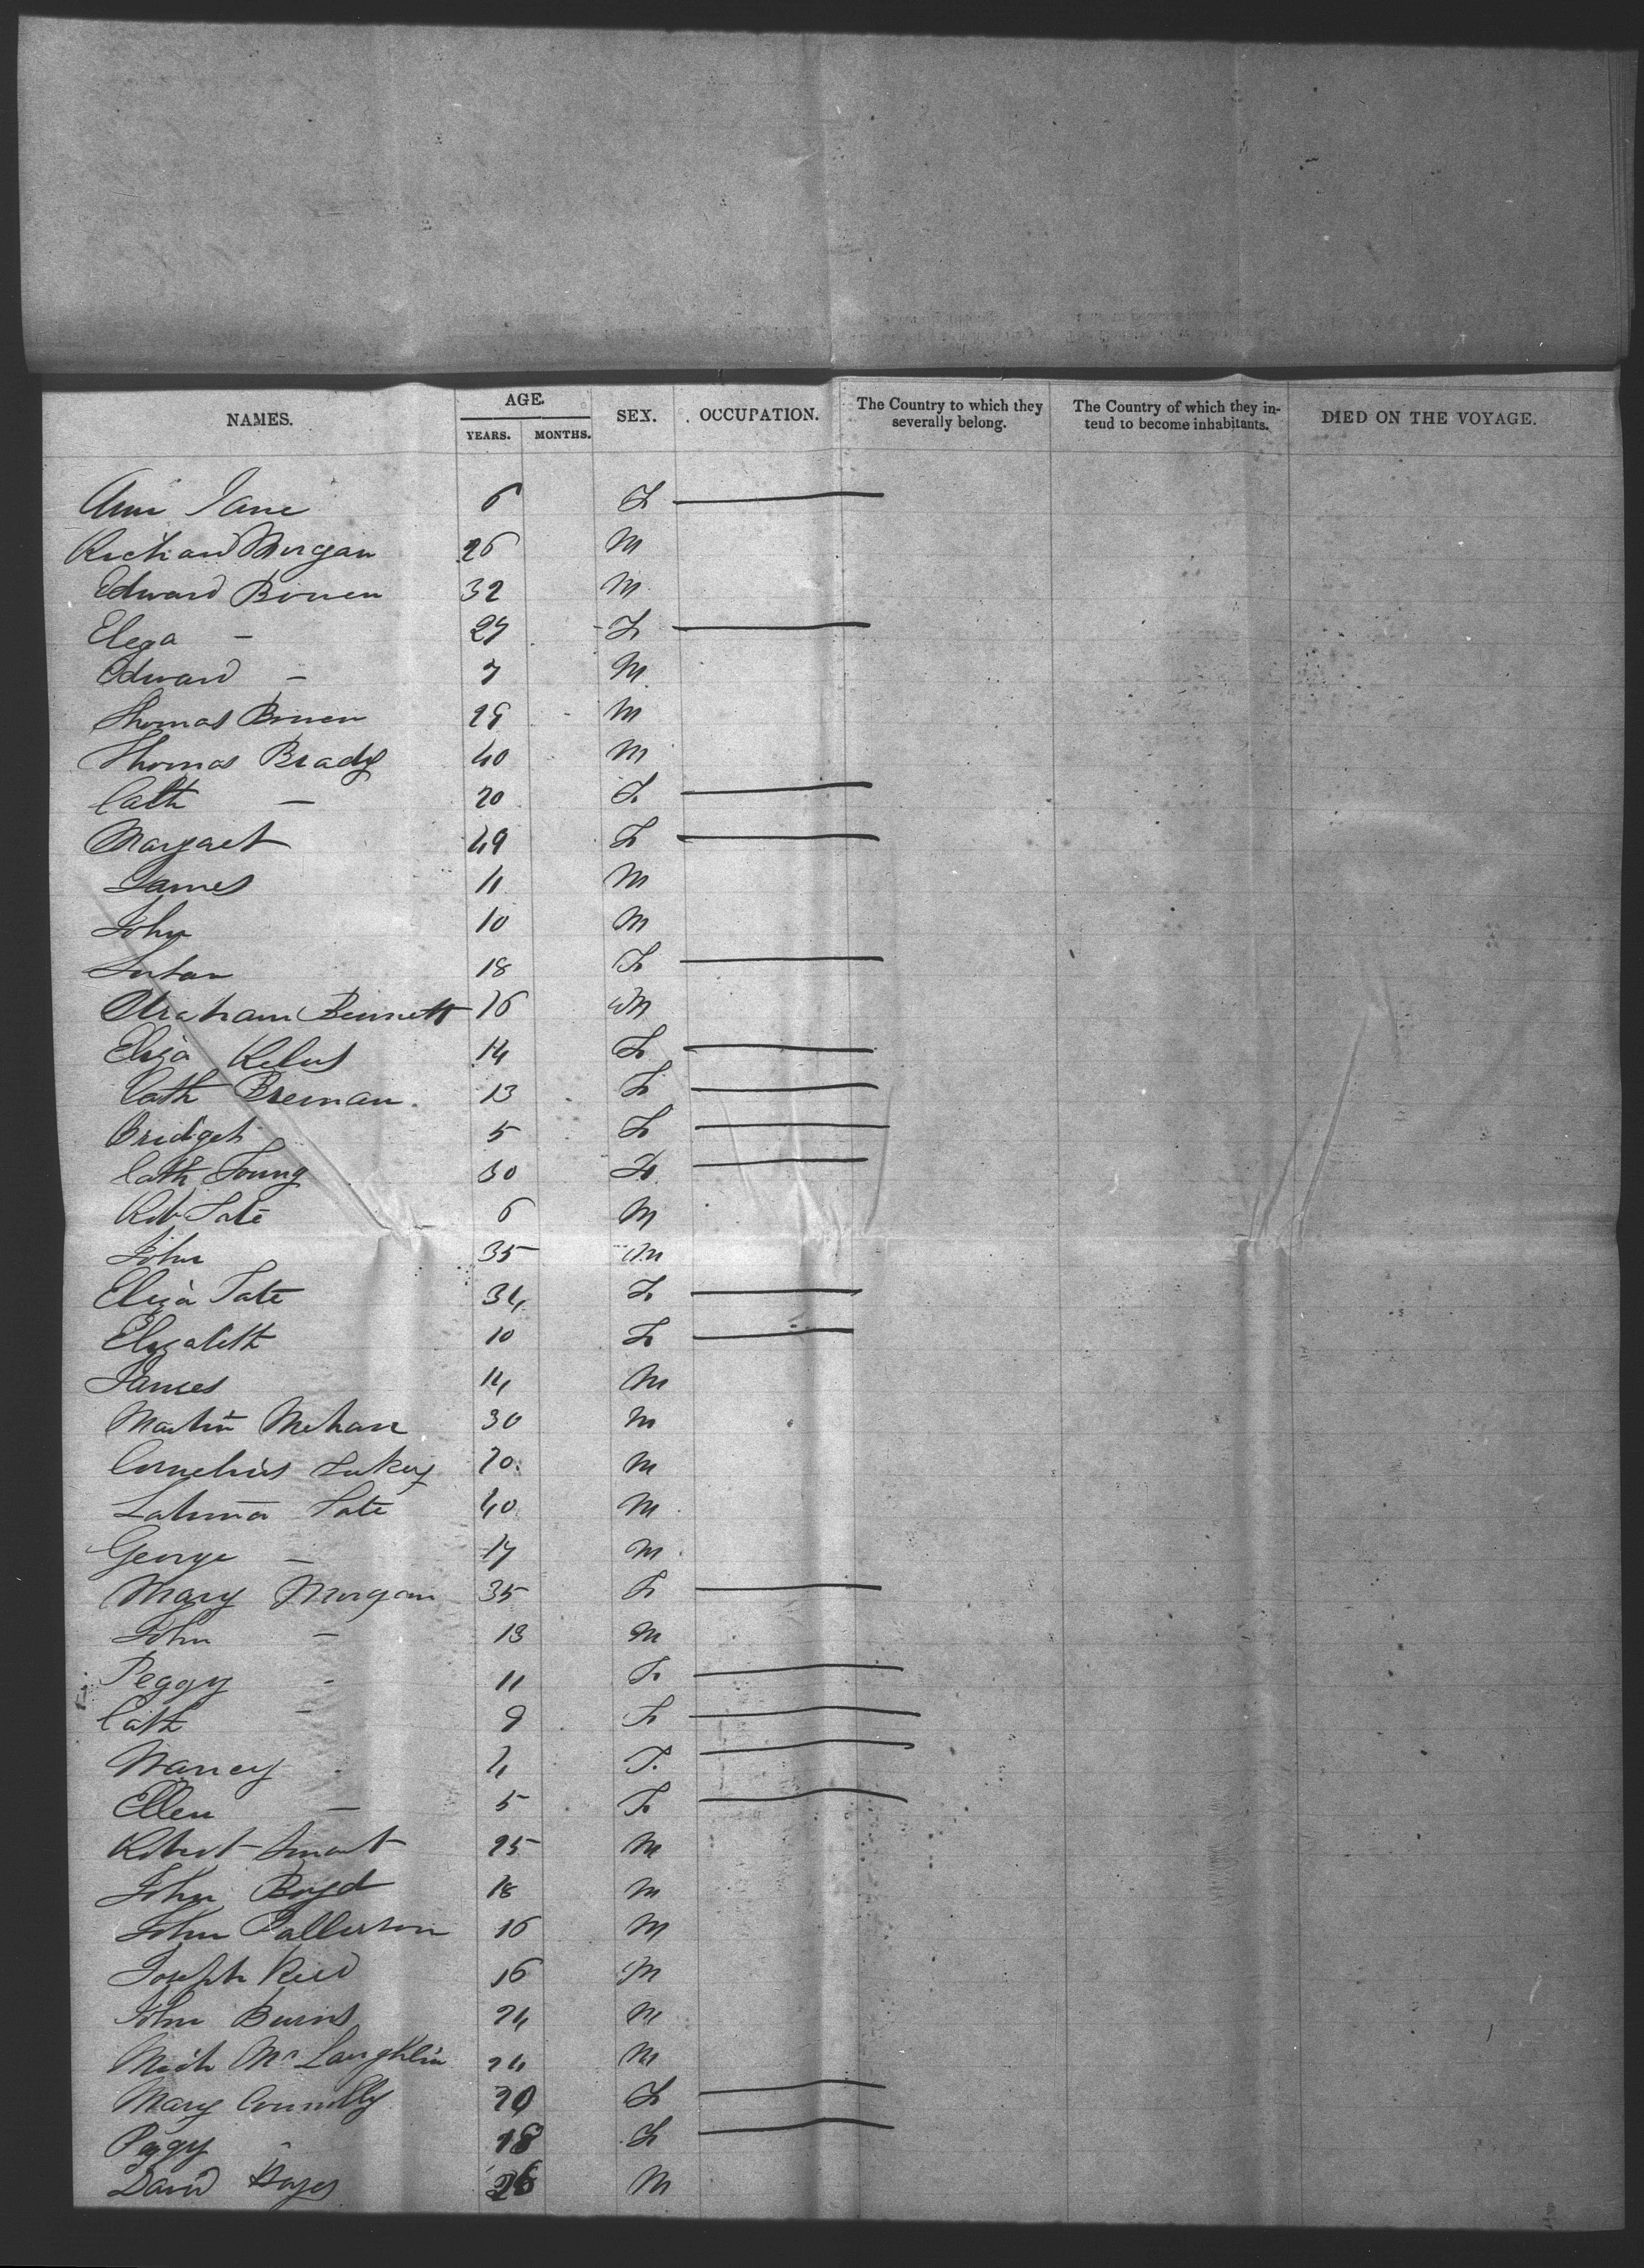 NAMES. AGE. YEARS. MONTHS. SEX. OCCUPATION. The Country to which they severally belong. The Country of which they intend to become inhabitants. DIED ON THE VOYAGE.
Ann Jane 6 F
Richard Morgan 26 M
Edward Bowen 32 M
Eliza — 27 F
Edward — 7 M
Thomas Bowen 28 M
Thomas Brady 40 M
Cath — 20 F
Margaret 49 F
James 11 M
John 10 M
18 F
Abraham Bennett 16 M
Eliza 14 F
Cath Brennan 13 F
Bridget 5 F
Cath Young 30 F
Rob Tate 6 M
John 35 M
Eliza Tate 34 F
Elizabeth 10 F
James 14 M
Martin Mehan 30 M
Cornelius 20 M
Tate 40 M
George — 17 M
Mary Morgan 35 F
John — 13 M
Peggy - 11 F
Cath - 9 F
Nancy - F
Ellen — 5 F
Robert Smart 25 M
John Boyd 18 M
John Patterson 16 M
Joseph Reed 16 M
John Burns 24 M
Mich McLaughlin 24 M
Mary Connolly 20 F
Peggy - 18 F
David Hayes 26 M